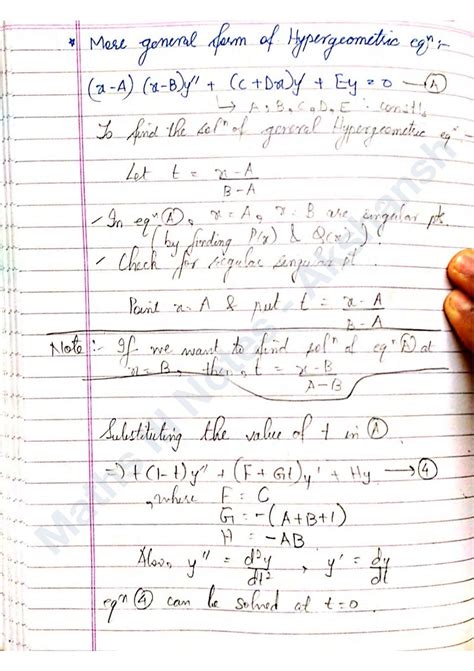 * More general form of Hypergeometric eqⁿ:-
(x-A) (x-B)y'' + (C+Dx)y' + Ey = 0 —Ⓐ
↳ A, B, C, D, E : consts
To find the solⁿ of general Hypergeometric eqⁿ:-
Let t = (x-A)/(B-A)
- In eqⁿ Ⓐ, x=A, x=B are singular pts.
(by finding P(x) & Q(x)).
- Check for regular singular pt.
Point x=A & put t = (x-A)/(B-A)
Note:- If we want to find solⁿ of eqⁿ Ⓐ at
x=B, then, t = (x-B)/(A-B)
Substituting the value of t in Ⓐ
=) t(1-t)y'' + (F+Gt)y' + Hy —④
, where F = C
G = -(A+B+1)
H = -AB
Also, y'' = d²y/dt² , y' = dy/dt
eqⁿ ④ can be solved at t=0.
Maths N Notes - Akshansh